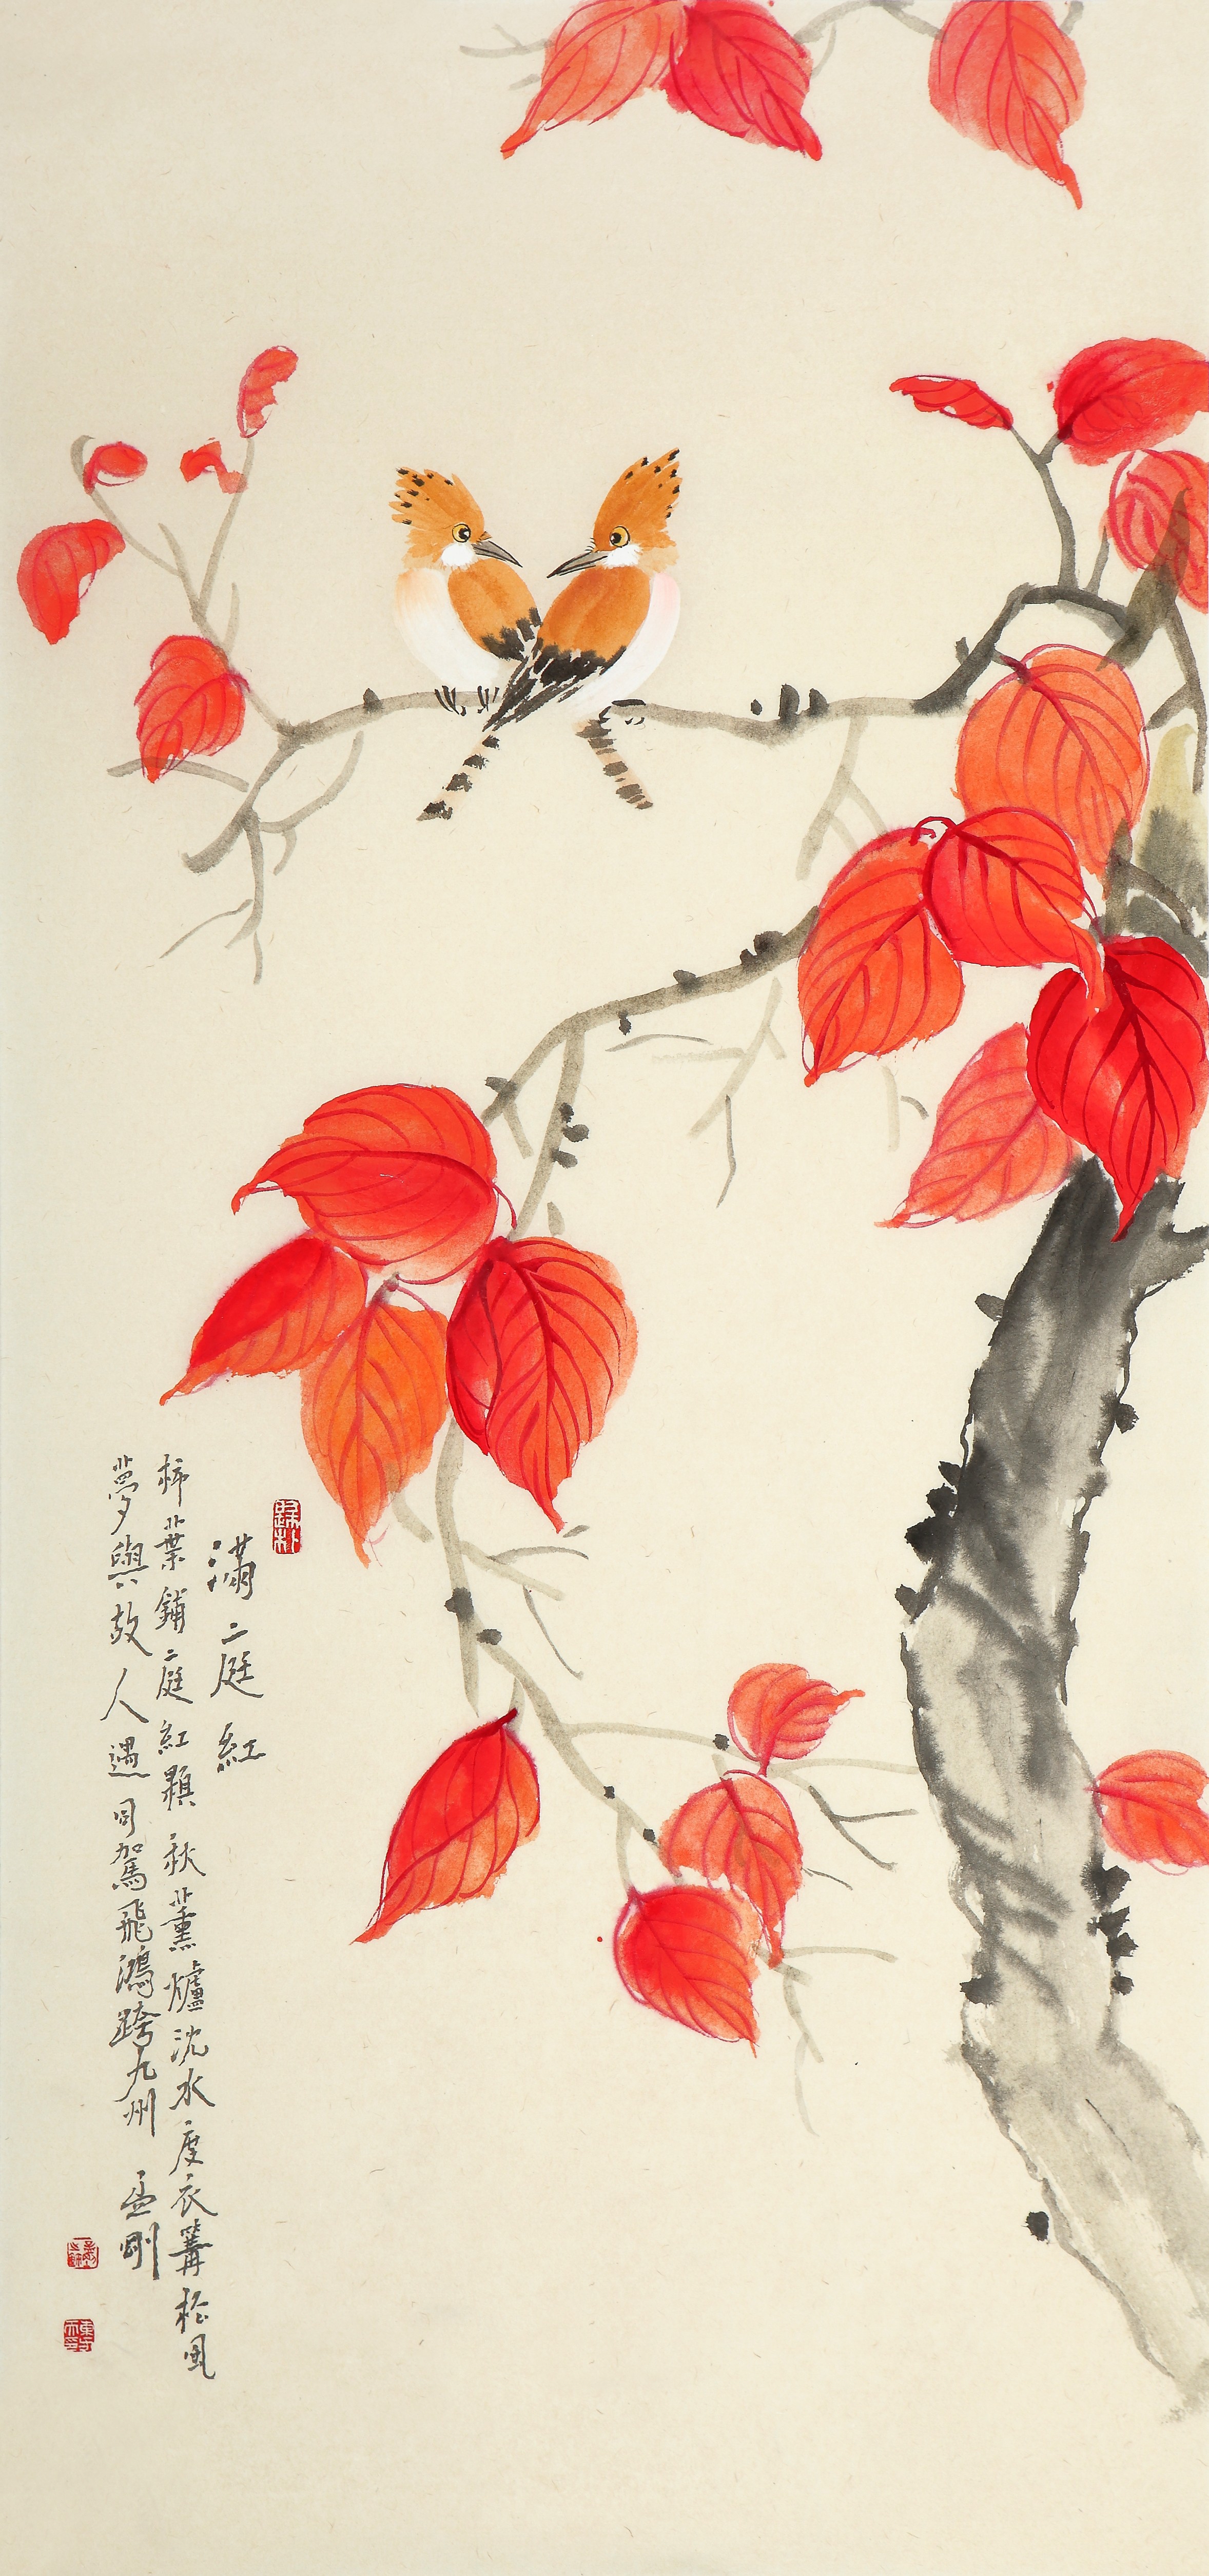 滿庭紅
柿葉鋪庭紅顆秋薰爐沈水度衣篝松風
夢與故人遇同駕飛鴻跨九州 孟剛